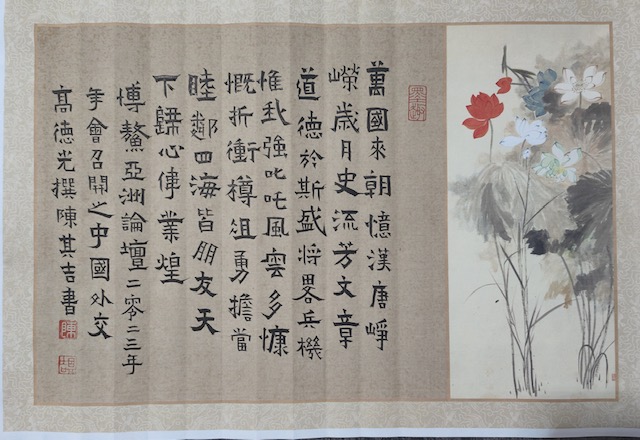 萬國來朝憶漢唐崢
嶸歲月史流芳文章
道德於斯盛將畧兵機
惟我強叱吒風雲多慷
慨折衝樽俎勇擔當
睦鄰四海皆朋友天
下歸心偉業煌
博鰲亞洲論壇二零二三年
年會召開之中國外交
高德光撰陳其吉書
陳